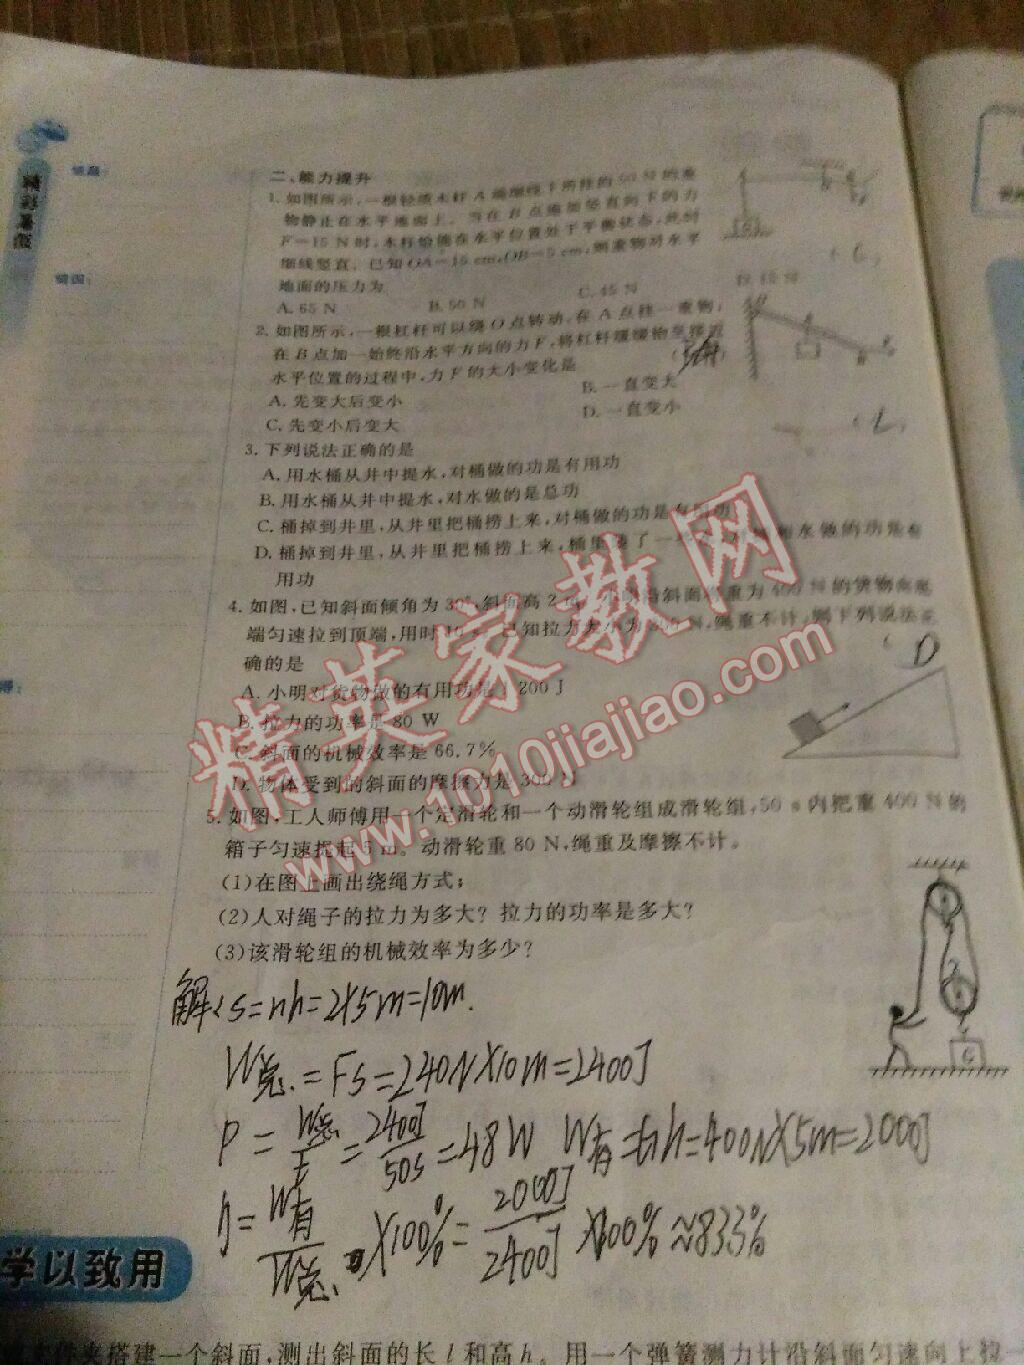 精彩暑假
二、能力提升
1. 如图所示,一根轻质木杆A端细线下所挂的50 N的重
物静止在水平地面上。当在B点施加竖直向下的力
F=15 N时,木杆恰能在水平位置处于平衡状态,此时
细线竖直。已知OA=15 cm,OB=5 cm,则重物对水平
地面的压力为
A. 65 N B. 50 N C. 45 N D. 15 N
2. 如图所示,一根杠杆可以绕O点转动,在A点挂一重物,
在B点加一始终沿水平方向的力F,将杠杆缓缓抬至接近
水平位置的过程中,力F的大小变化是
A. 先变大后变小 B. 一直变大
C. 先变小后变大 D. 一直变小
3. 下列说法正确的是
A. 用水桶从井中提水,对桶做的功是有用功
B. 用水桶从井中提水,对水做的是总功
C. 桶掉到井里,从井里把桶捞上来,对桶做的功是有用功
D. 桶掉到井里,从井里把桶捞上来,桶里 了一 水做的功是有
用功
4. 如图,已知斜面倾角为30°,斜面高2 沿斜面将重为400 N的货物从底
端匀速拉到顶端,用时10 s。已知拉力大小为300 N,绳重不计,则下列说法正
确的是
D
A. 小明对货物做的有用功是1 200 J
B. 拉力的功率是80 W
C. 斜面的机械效率是66.7%
D. 物体受到的斜面的摩擦力是300 N
5. 如图,工人师傅用一个定滑轮和一个动滑轮组成滑轮组,50 s内把重400 N的
箱子匀速提起5 m。动滑轮重80 N,绳重及摩擦不计。
(1)在图上画出绕绳方式;
(2)人对绳子的拉力为多大?拉力的功率是多大?
(3)该滑轮组的机械效率为多少?
解: S=nh=2×5m=10m.
W总=Fs=240N×10m=2400J
P=W总/t=2400J/50s=48W W有=Gh=400N×5m=2000J
η=W有/W总×100%=2000J/2400J×100%≈83.3%
G
学以致用
文件夹搭建一个斜面,测出斜面的长l和高h。用一个弹簧测力计沿斜面匀速向上拉一
精英家教网
www.1010jiajiao.com